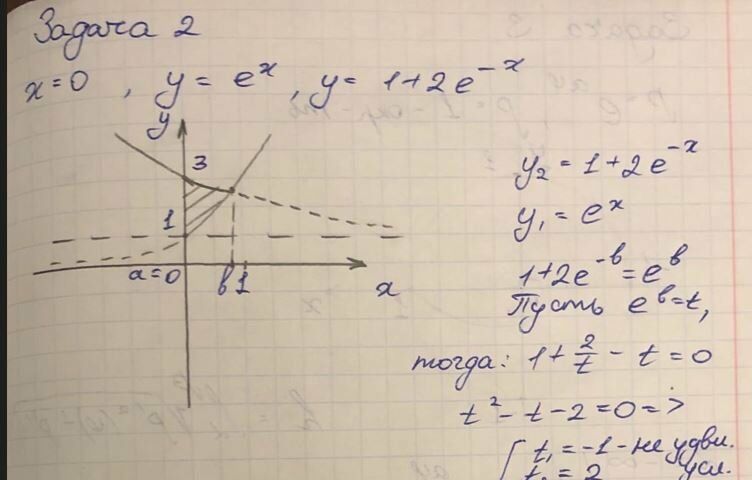 Задача 2
x=0 , y = e^x , y = 1+2e^-x
y
3
1
a=0
в 1
x
y₂ = 1+2e^-x
y₁ = e^x
1+2e^-в = e^в
Пусть e^в=t,
тогда: 1 + 2/t - t = 0
t² - t - 2 = 0 =>
[ t₁ = -1 - не удвл.
t₁ = 2 усл.